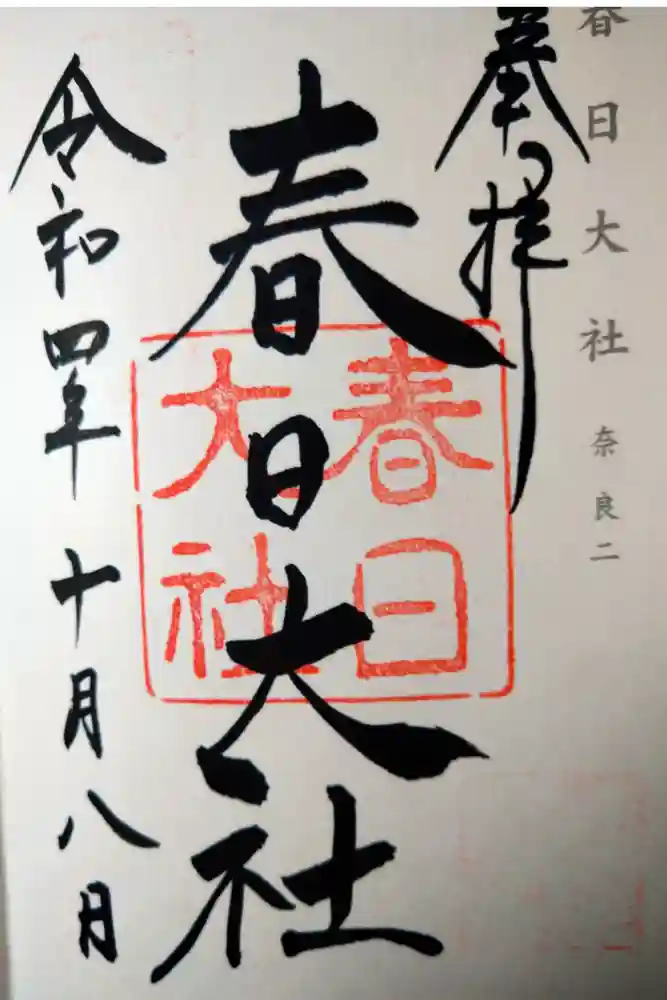 春日大社 奈良二
奉拝
春日大社
春日
大社
令和四年十月八日